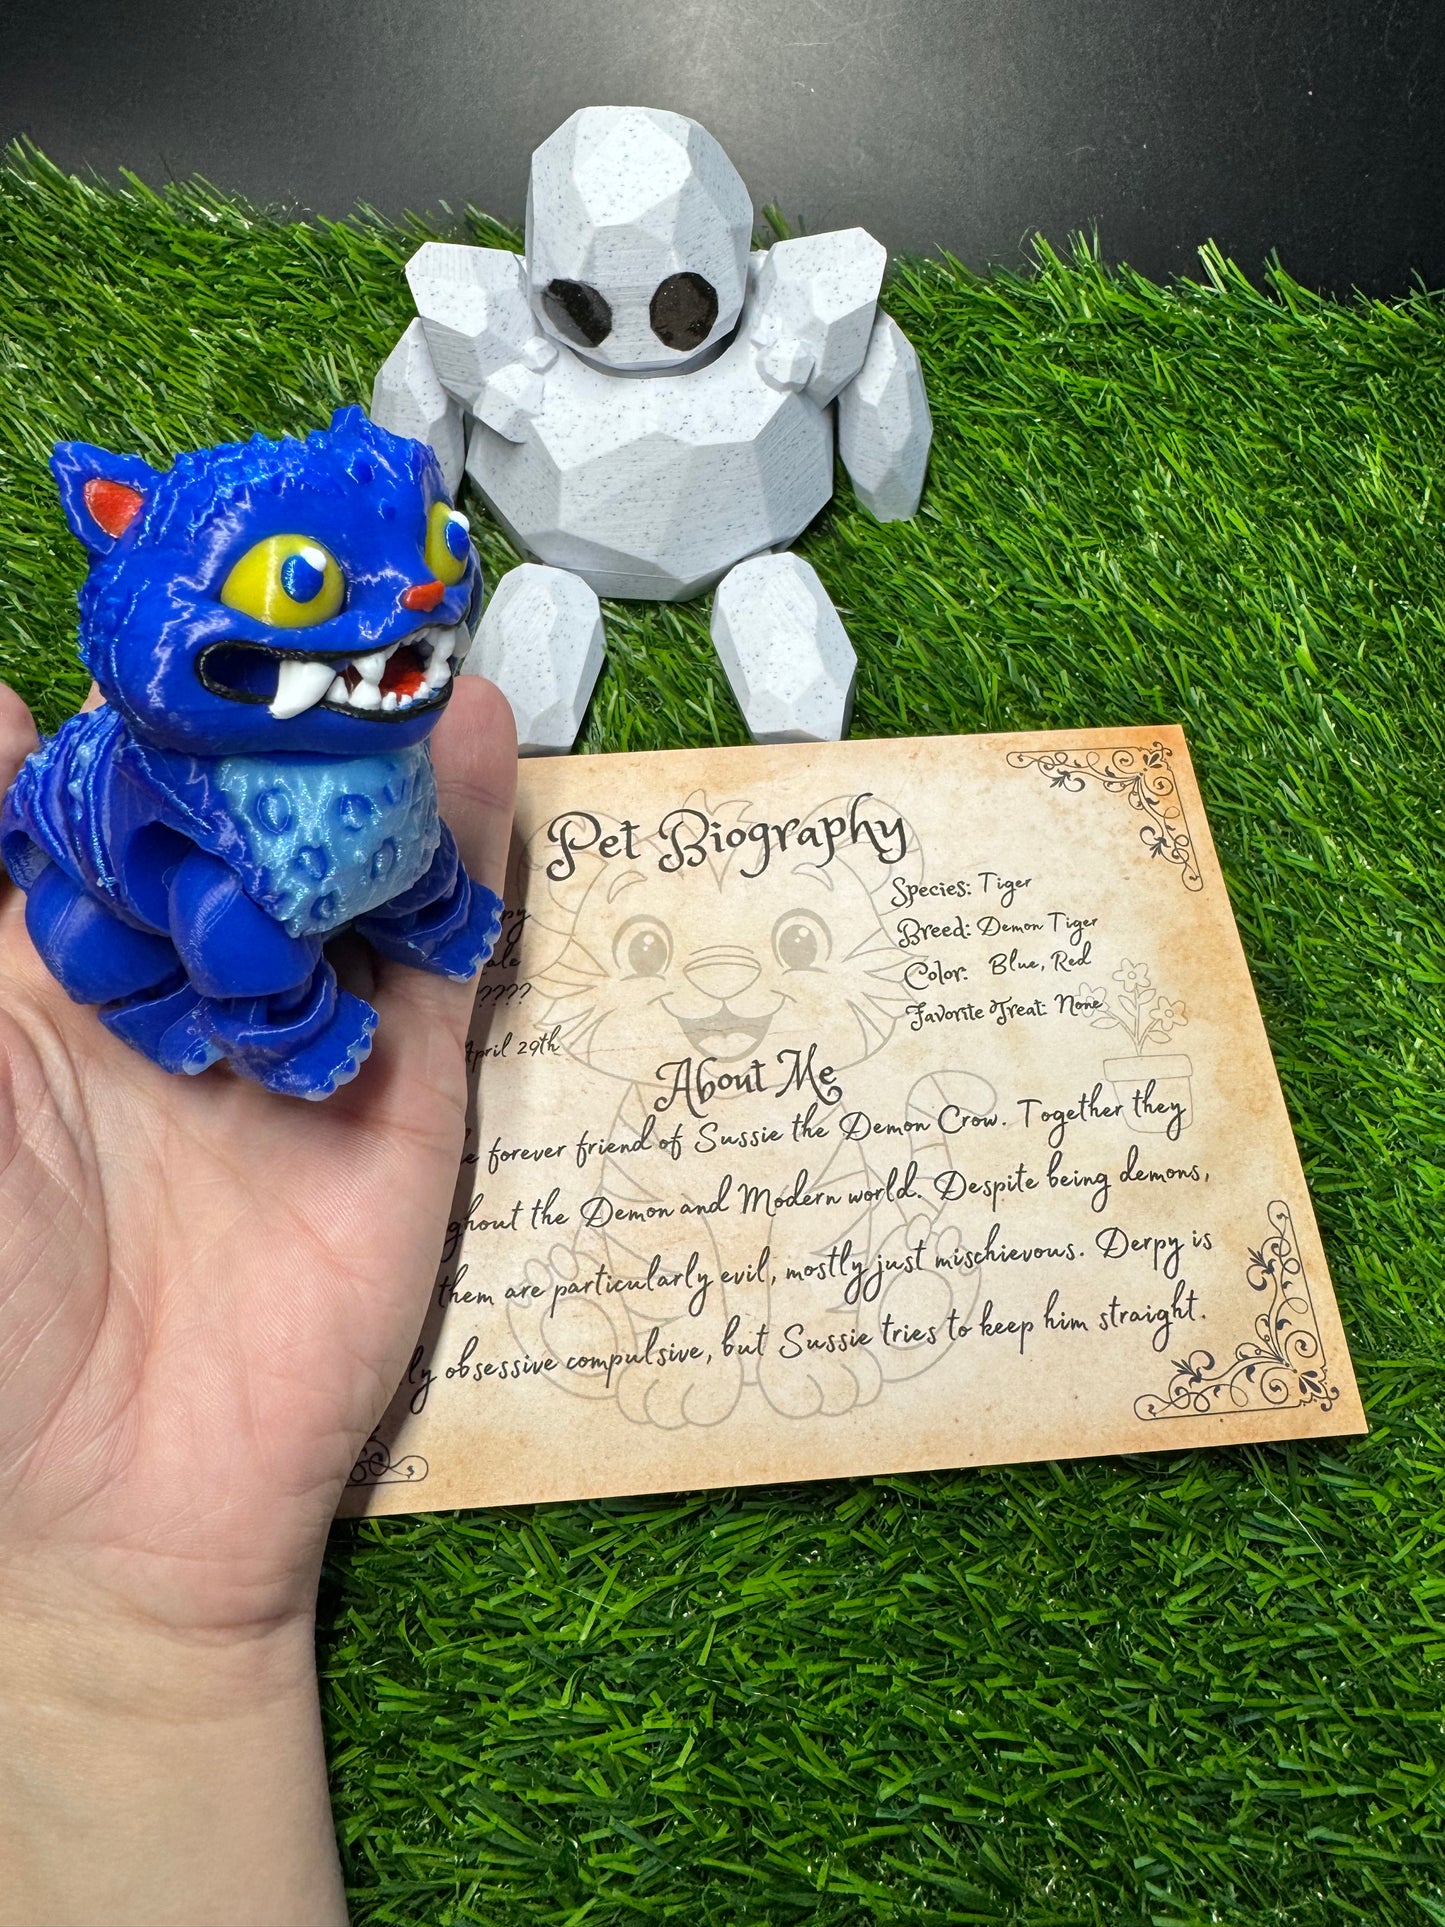 Pet Biography
Species: Tiger
Breed: Demon Tiger
Color: Blue, Red
Favorite Treat: None
????
April 29th
About Me
forever friend of Sussie the Demon Crow. Together they
the Demon and Modern world. Despite being demons,
them are particularly evil, mostly just mischievous. Derpy is
obsessive compulsive, but Sussie tries to keep him straight.